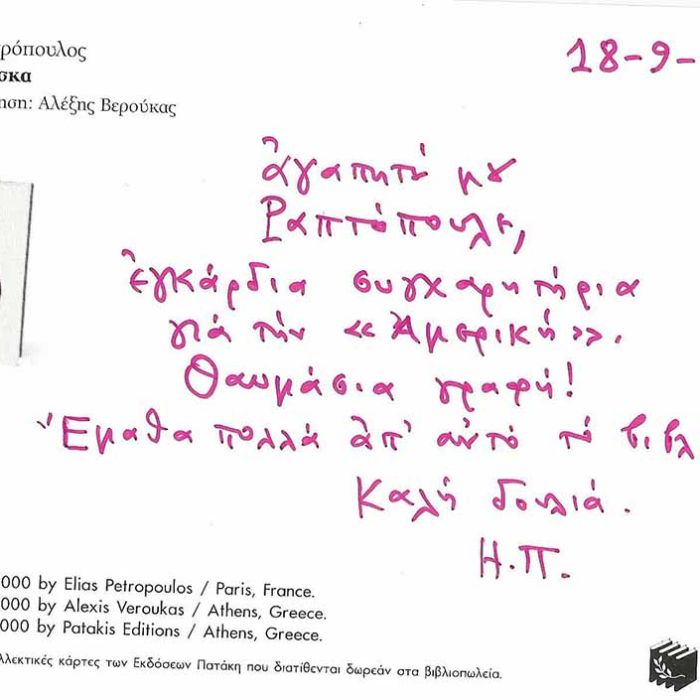 ρόπουλος
σκα
ηση: Αλέξης Βερούκας
18-9-
ἀγαπητέ μȣ
Ραπτόπουλε,
ἐγκάρδια συγχαρητήρια
γιά τήν «Ἀμερική».
Θαυμάσια γραφή!
Ἔμαθα πολλά ἀπ' αὐτό τό βιβλ
Καλή δουλιά.
Η.Π.
000 by Elias Petropoulos / Paris, France.
000 by Alexis Veroukas / Athens, Greece.
000 by Patakis Editions / Athens, Greece.
λλεκτικές κάρτες των Εκδόσεων Πατάκη που διατίθενται δωρεάν στα βιβλιοπωλεία.